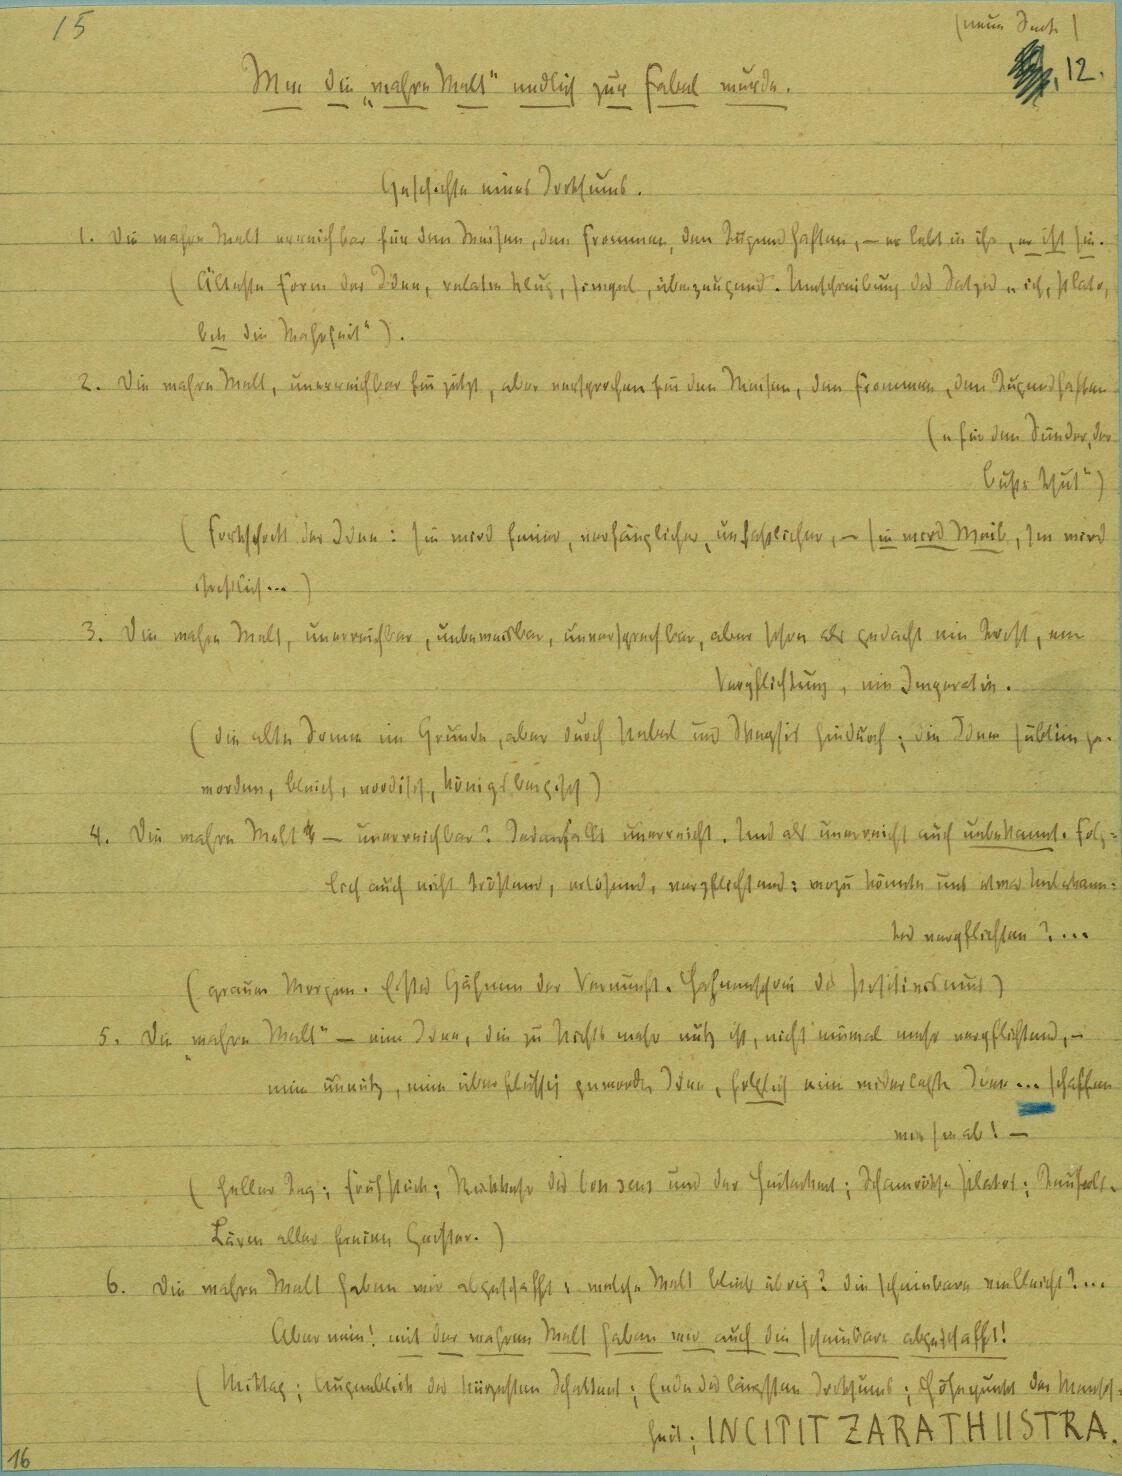 15
(neue Seite)
12.
Wie die „wahre Welt“ endlich zur Fabel wurde.
Geschichte eines Irrthums.
1. Die wahre Welt erreichbar für den Weisen, den Frommen, den Tugendhaften, — er lebt in ihr, er ist sie.
(Älteste Form der Idee, relativ klug, simpel, überzeugend. Umschreibung des Satzes „ich, Plato,
bin die Wahrheit“).
2. Die wahre Welt, unerreichbar für jetzt, aber versprochen für den Weisen, den Frommen, den Tugendhaften
(„für den Sünder, der
Buße thut“)
(Fortschritt der Idee: sie wird feiner, verfänglicher, unfaßlicher, — sie wird Weib, sie wird
christlich...)
3. Die wahre Welt, unerreichbar, unbeweisbar, unversprechbar, aber schon als gedacht ein Trost, eine
Verpflichtung, ein Imperativ.
(die alte Sonne im Grunde, aber durch Nebel und Skepsis hindurch; die Idee sublim ge-
worden, bleich, nordisch, königsbergisch)
4. Die wahre Welt — unerreichbar? Jedenfalls unerreicht. Und als unerreicht auch unbekannt. Folg=
lich auch nicht tröstend, erlösend, verpflichtend: wozu könnte uns etwas Unbekann=
tes verpflichten?...
(grauer Morgen. Erstes Gähnen der Vernunft. Hahnenschrei des Positivismus)
5. Die „wahre Welt“ — eine Idee, die zu Nichts mehr nütz ist, nicht einmal mehr verpflichtend, —
eine unnütz, eine überflüssig gewordne Idee, folglich eine widerlegte Idee... schaffen
wir sie ab! —
(heller Tag; Frühstück; Rückkehr des bon sens und der Heiterkeit; Schamröthe Platos; Teufels-
Lärm aller freien Geister.)
6. Die wahre Welt haben wir abgeschafft: welche Welt blieb übrig? die scheinbare vielleicht?...
Aber nein! mit der wahren Welt haben wir auch die scheinbare abgeschafft!
(Mittag; Augenblick des kürzesten Schattens; Ende des längsten Irrthums; Höhepunkt der Mensch-
heit; INCIPIT ZARATHUSTRA.
16